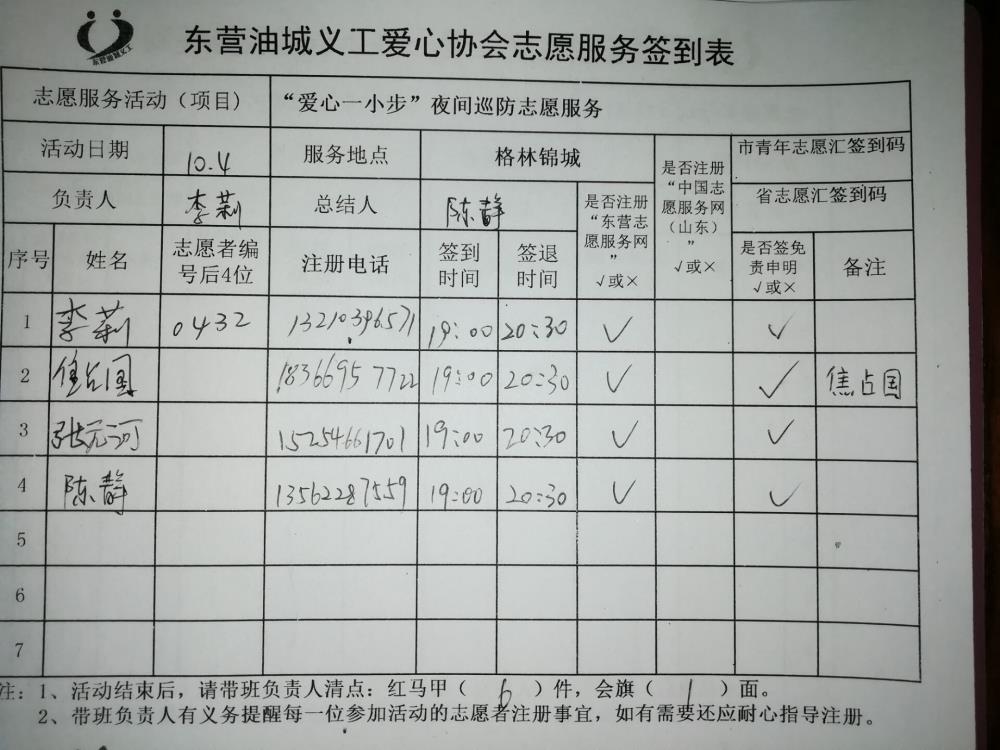 东营油城义工
东营油城义工爱心协会志愿服务签到表
志愿服务活动（项目） “爱心一小步”夜间巡防志愿服务
活动日期 10.4 服务地点 格林锦城 是否注册“中国志愿服务网（山东）” √或× 市青年志愿汇签到码
负责人 李莉 总结人 陈静 是否注册“东营志愿服务网” √或× 省志愿汇签到码
序号 姓名 志愿者编号后4位 注册电话 签到时间 签退时间 是否签免责申明 √或× 备注
1 李莉 0432 13210396571 19:00 20:30 √ √
2 焦占国 18366957722 19:00 20:30 √ √ 焦占国
3 张元河 15254661701 19:00 20:30 √ √
4 陈静 13562287559 19:00 20:30 √ √
5
6
7
注：1、活动结束后，请带班负责人清点：红马甲（ 6 ）件，会旗（ 1 ）面。
2、带班负责人有义务提醒每一位参加活动的志愿者注册事宜，如有需要还应耐心指导注册。